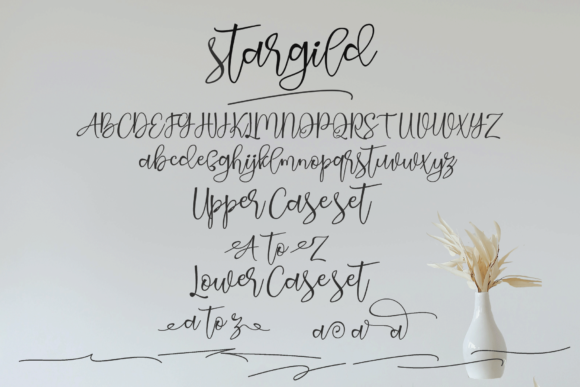 stargild
ABCDEFGHIJKLMNOPQRSTUVWXYZ
abcdefghijklmnopqrstuvwxyz
Upper Case set
A to Z
Lower Case set
a to z a a a